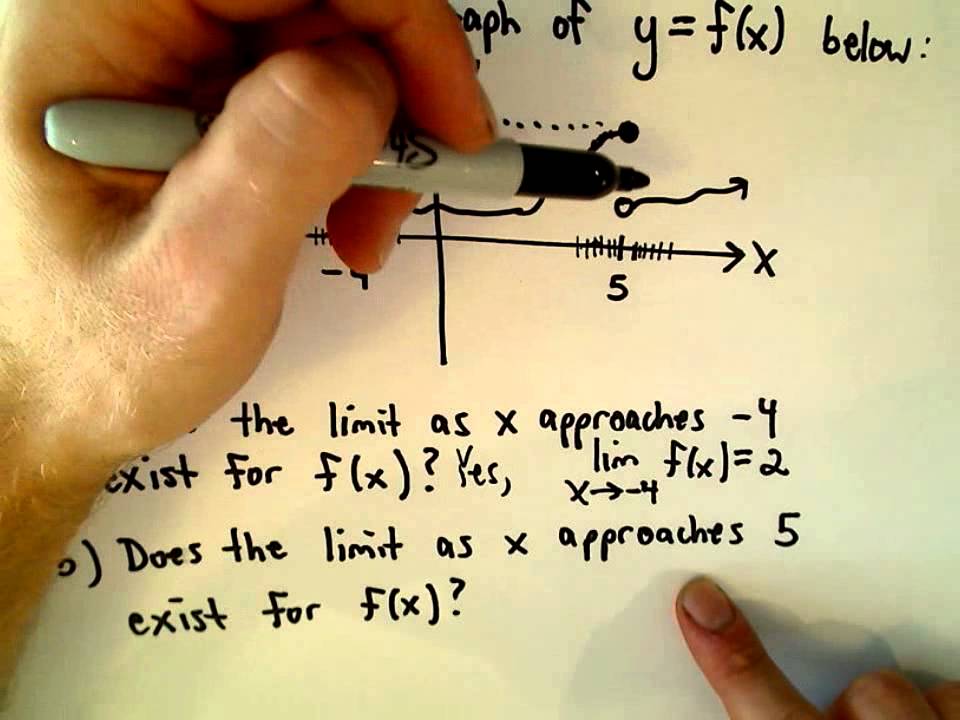 of y=f(x) below:
X
-4
5
the limit as x approaches -4
exist for f(x)? Yes, lim f(x)=2
x→-4
) Does the limit as x approaches 5
exist for f(x)?